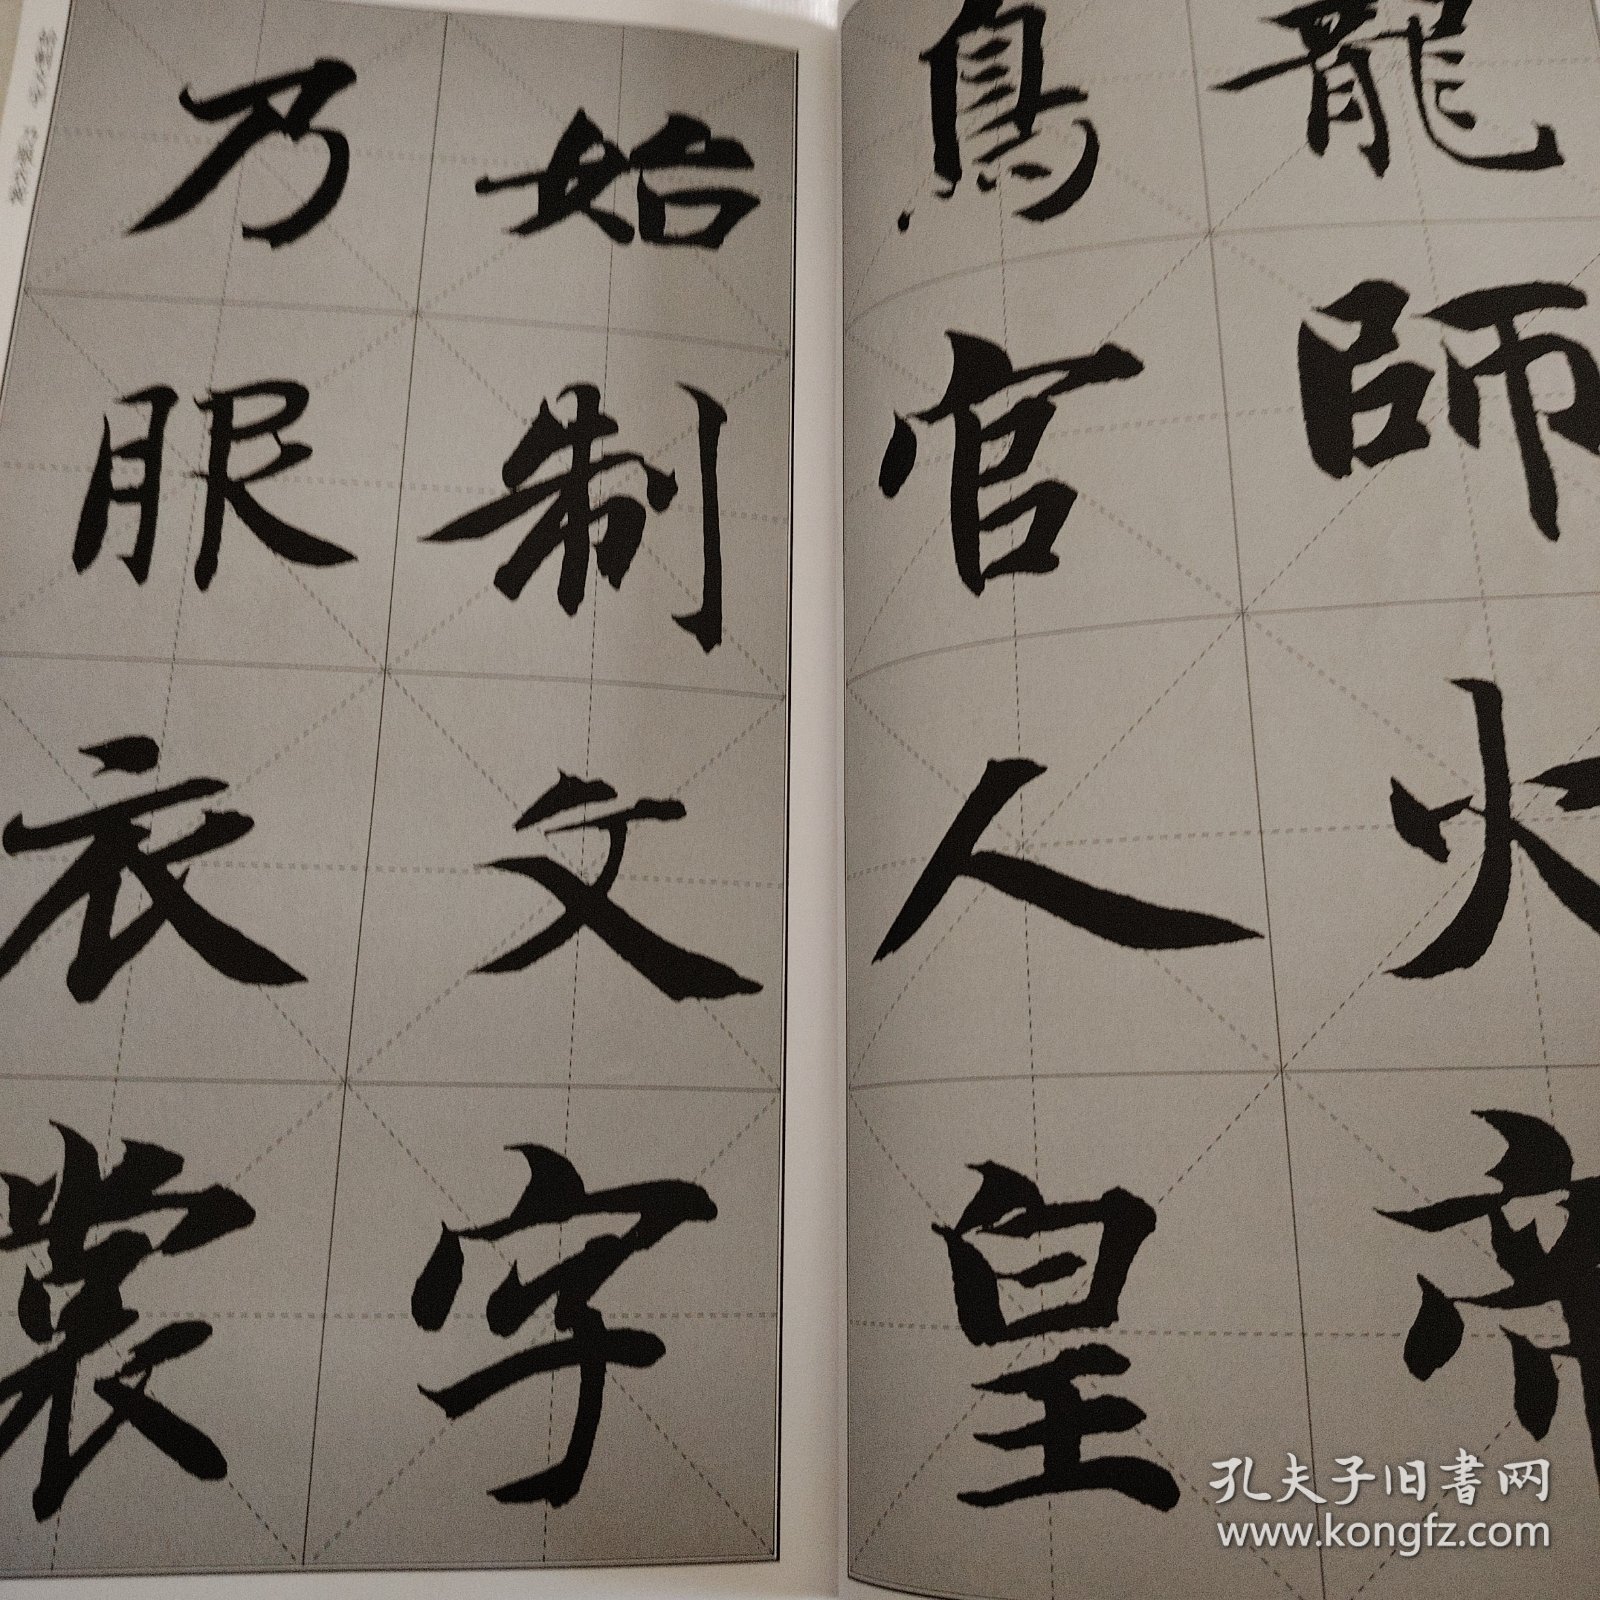 龍師火帝
鳥官人皇
始制文字
乃服衣裳
孔夫子旧书网
www.kongfz.com